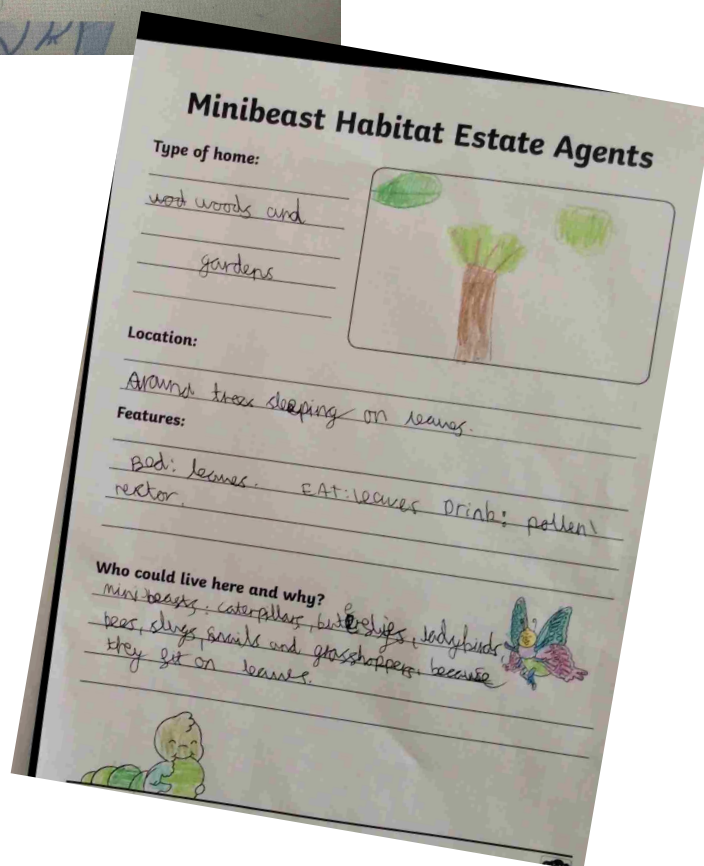 Minibeast Habitat Estate Agents
Type of home:
wod woods and
gardens
Location:
Around trees sleeping on leaves.
Features:
Bed: leaves. EAT: leaves Drink: pollen\
nector.
Who could live here and why?
minibeasts: caterpillars, ladybirds,
bees, slugs, snails and grasshoppers, because
they on leaves.